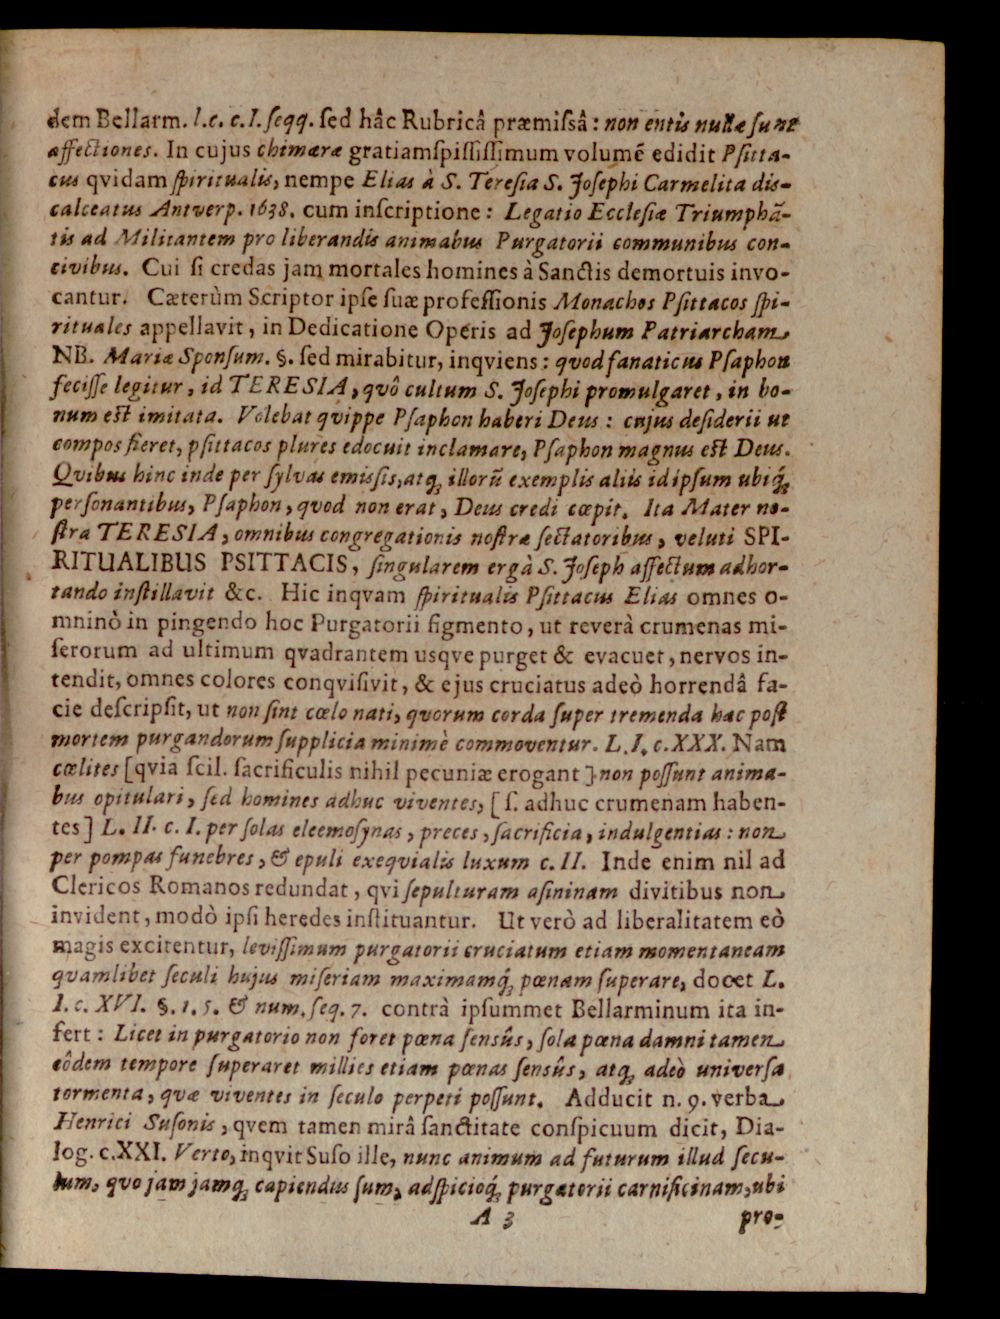 dem Bellarm. l.c. c.I. ſeqq. ſed hâc Rubricâ præmiſsâ: non entis nullæ ſunt
affectiones. In cujus chimæræ gratiamſpiſſiſſimum volumē edidit Pſitta-
cus qvidam ſpiritualis, nempe Elias à S. Tereſia S. Joſephi Carmelita diſ-
calceatus Antverp. 1638. cum inſcriptione: Legatio Eccleſiæ Triumphā-
tis ad Militantem pro liberandis animabus Purgatorii communibus con-
civibus. Cui ſi credas jam mortales homines à Sanctis demortuis invo-
cantur. Cæterùm Scriptor ipſe ſuæ profeſſionis Monachos Pſittacos ſpi-
rituales appellavit, in Dedicatione Operis ad Joſephum Patriarcham
NB. Mariæ Sponſum. §. ſed mirabitur, inqviens: quod fanaticus Pſaphon
feciſſe legitur, id TERESIA, quô cultum S. Joſephi promulgaret, in bo-
num eſt imitata. Volebat qvippe Pſaphon haberi Deus: cujus deſiderii ut
compos fieret, pſittacos plures edocuit inclamare, Pſaphon magnus eſt Deus.
Qvibus hinc inde per ſylvas emiſsis, atq; illorū exemplis aliis idipſum ubiq;
perſonantibus, Pſaphon, qvod non erat, Deus credi cœpit. Ita Mater no-
ſtra TERESIA, omnibus congregationis noſtræ ſectatoribus, veluti SPI-
RITUALIBUS PSITTACIS, ſingularem ergà S. Joſeph affectum adhor-
tando inſtillavit &c. Hic inqvam ſpiritualis Pſittacus Elias omnes o-
mninò in pingendo hoc Purgatorii figmento, ut reverà crumenas mi-
ſerorum ad ultimum qvadrantem usqve purget & evacuet, nervos in-
tendit, omnes colores conqviſivit, & ejus cruciatus adeò horrendâ fa-
cie deſcripſit, ut non ſint cœlo nati, quorum corda ſuper tremenda hac poſt
mortem purgandorum ſupplicia minimè commoventur. L.I. c.XXX. Nam
cœlites [qvia ſcil. ſacrificulis nihil pecuniæ erogant] non poſſunt anima-
bus opitulari, ſed homines adhuc viventes, [ſ. adhuc crumenam haben-
tes] L. II. c. I. per ſolas eleemoſynas, preces, ſacrificia, indulgentias: non
per pompas funebres, & epuli exeqvialis luxum c. II. Inde enim nil ad
Clericos Romanos redundat, qvi ſepulturam aſininam divitibus non
invident, modò ipſi heredes inſtituantur. Ut verò ad liberalitatem eò
magis excitentur, leviſſimum purgatorii cruciatum etiam momentaneam
quamlibet ſeculi hujus miſeriam maximamq; pœnam ſuperare, docet L.
I. c. XVI. §. 1. 5. & num. ſeq. 7. contrà ipſummet Bellarminum ita in-
fert: Licet in purgatorio non foret pœna ſensûs, ſola pœna damni tamen
eôdem tempore ſuperaret millies etiam pœnas ſensûs, atq; adeò univerſa
tormenta, quæ viventes in ſeculo perpeti poſſunt. Adducit n. 9. verba
Henrici Suſonis, qvem tamen mirâ ſanctitate conſpicuum dicit, Dia-
log. c.XXI. Verto, inqvit Suſo ille, nunc animum ad futurum illud ſecu-
lum, quo jam jamq; capiendus ſum, adſpicioq; purgatorii carnificinam, ubi
A 3 pro-